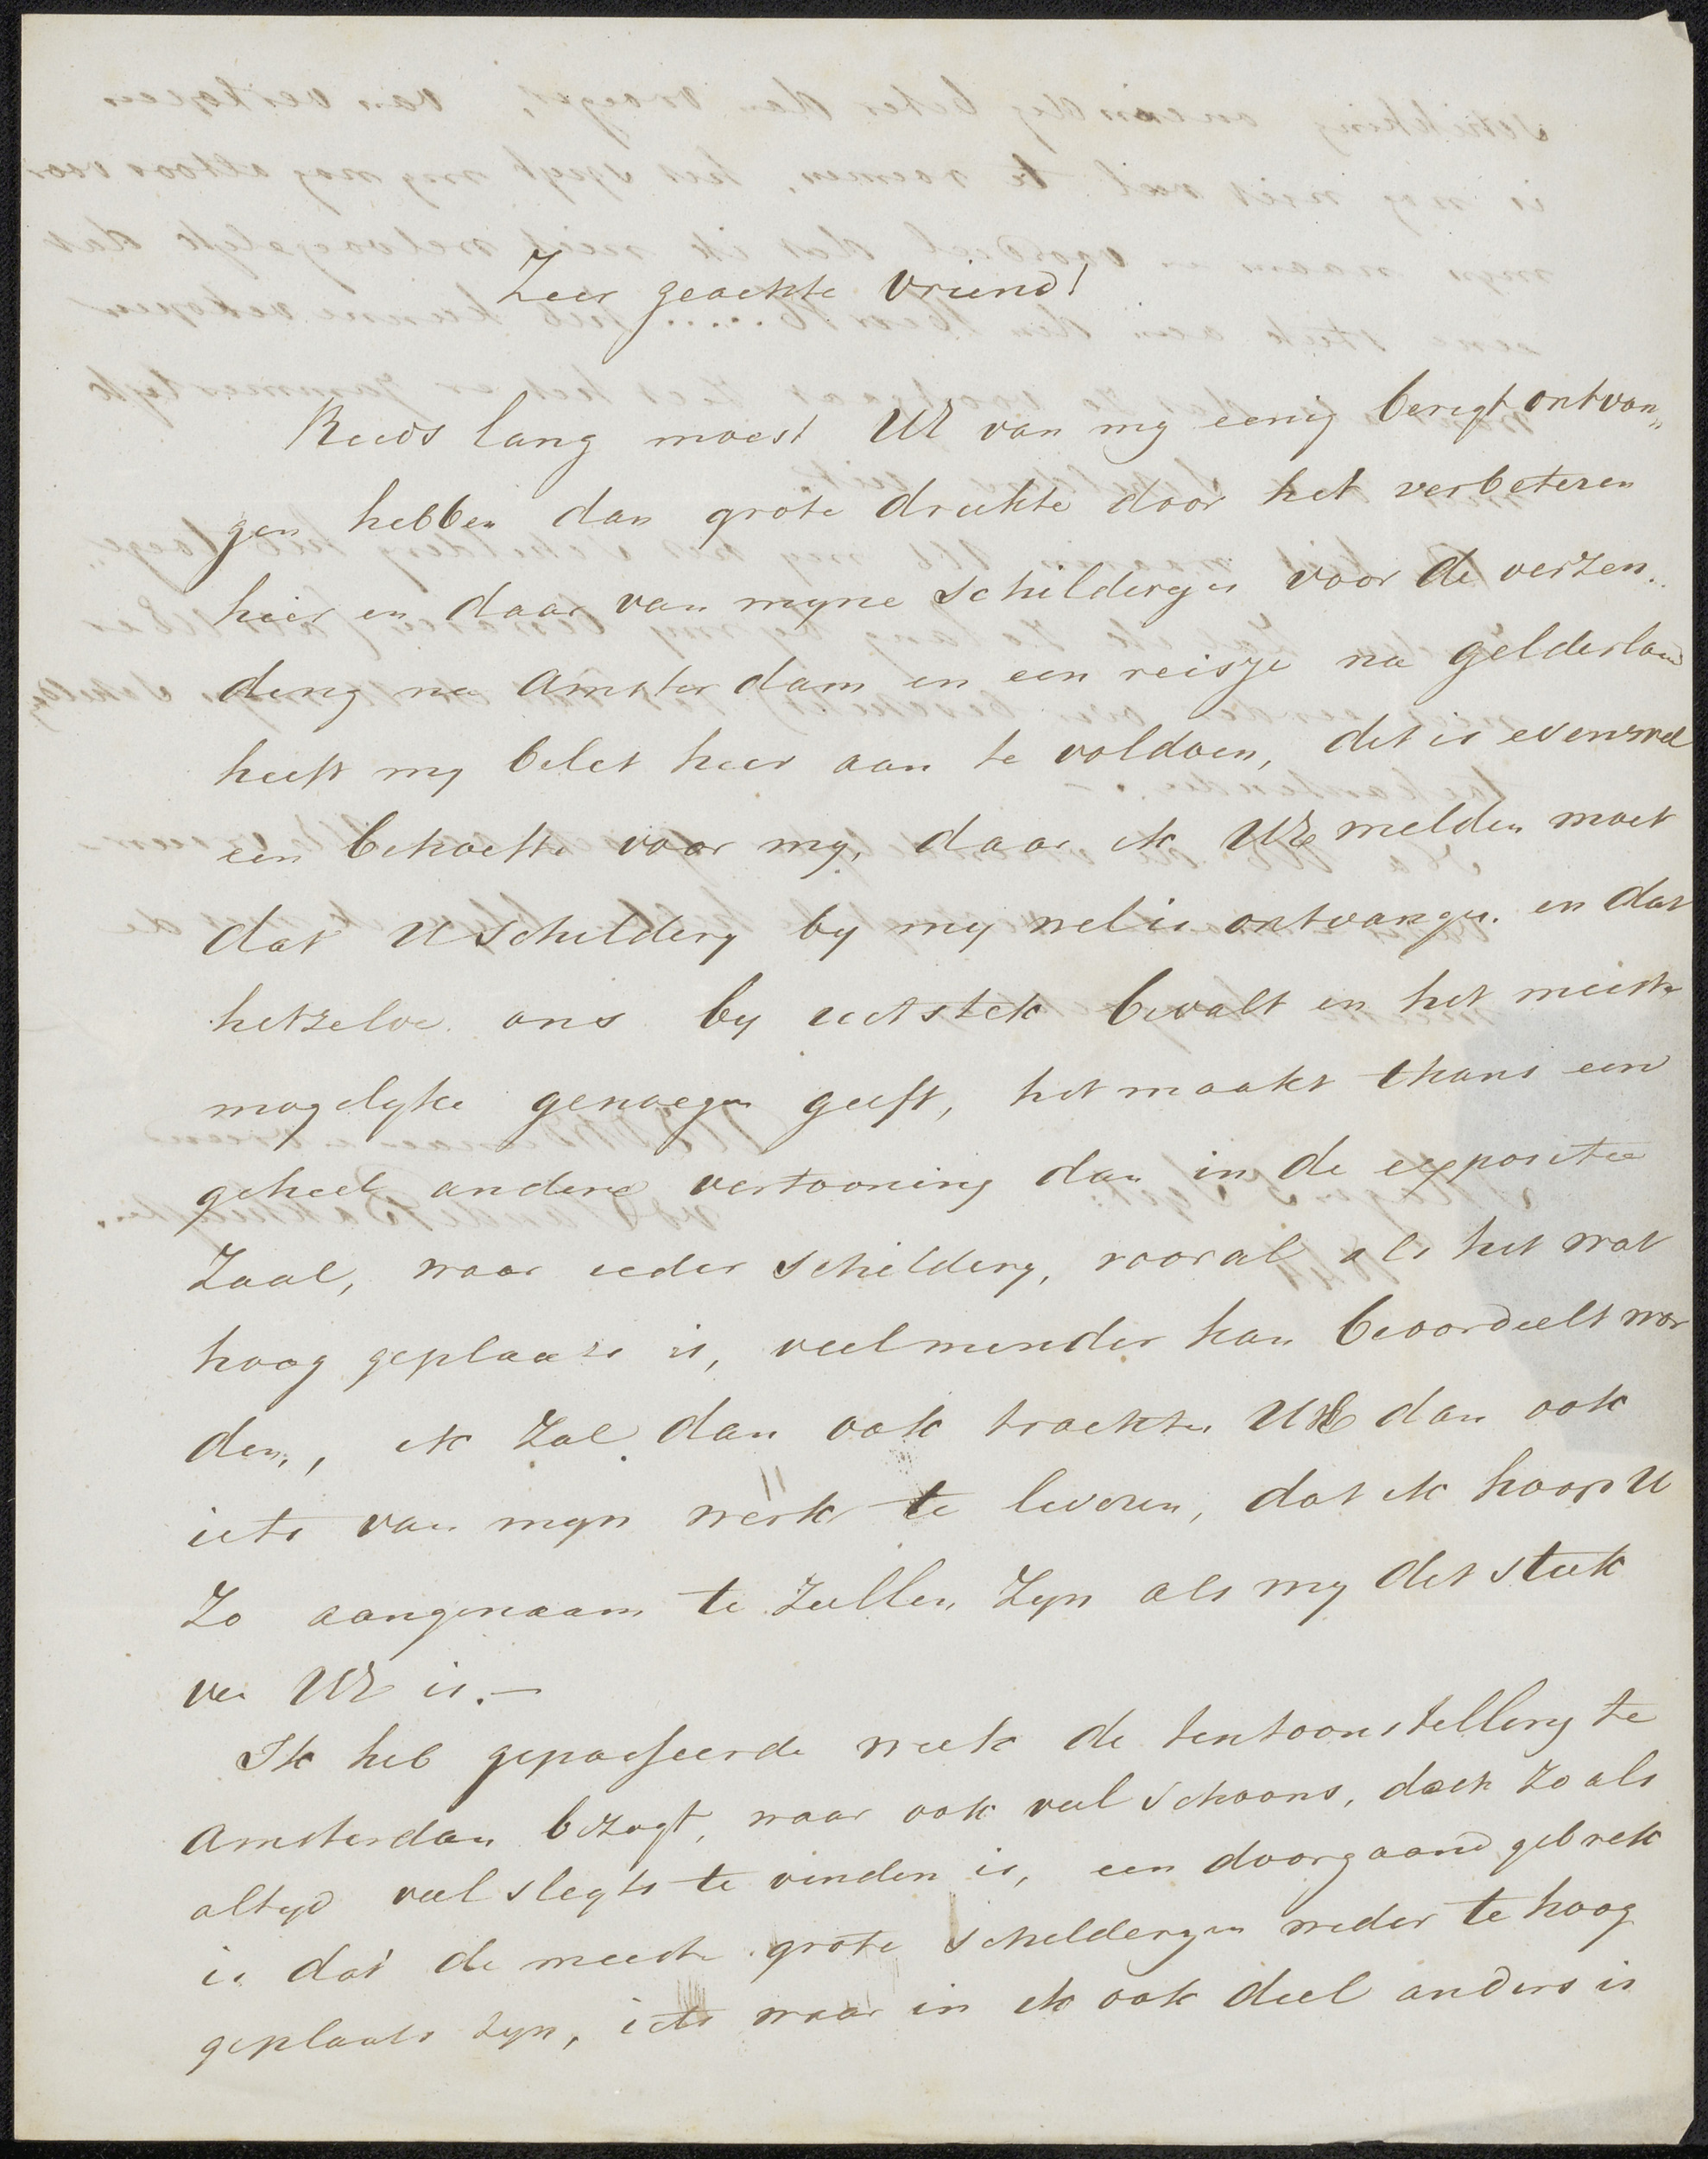 Zeer geachte vriend!
Reeds lang moest UE van my eenig berigt ontvan„
gen hebben dan grote drukte door het verbeteren
hier en daar van myne schilderyen voor de verzen„
ding na Amsterdam en een reisje na gelderland
heeft my belet hier aan te voldoen, dit is evenwel
een behoefte voor my, daar ik UE melden moet
dat u schildery by my wel is ontvangen en dat
hetzelve ons by uitstek bevalt en het meest
mogelyke genoegen geeft, het maakt thans een
geheel andere vertooning dan in de expositie
Zaal, waar ieder schildery, vooral als het wat
hoog geplaatst is, veel minder kan beoordeelt wor
den, ik zal dan ook trachten UE dan ook
iets van myn werk te leveren, dat ik hoop u
Zo aangenaam te zullen zyn als my dit stuk
van UE is.—
Ik heb gepasseerde week de tentoonstelling te
Amsterdam bezogt, waar ook veel schoons, doch zo als
altyd veel slegts te vinden is, een doorgaand gebrek
is dat de meeste grote schilderyen weder te hoog
geplaatst zyn, iets waar in ik ook deel anders is